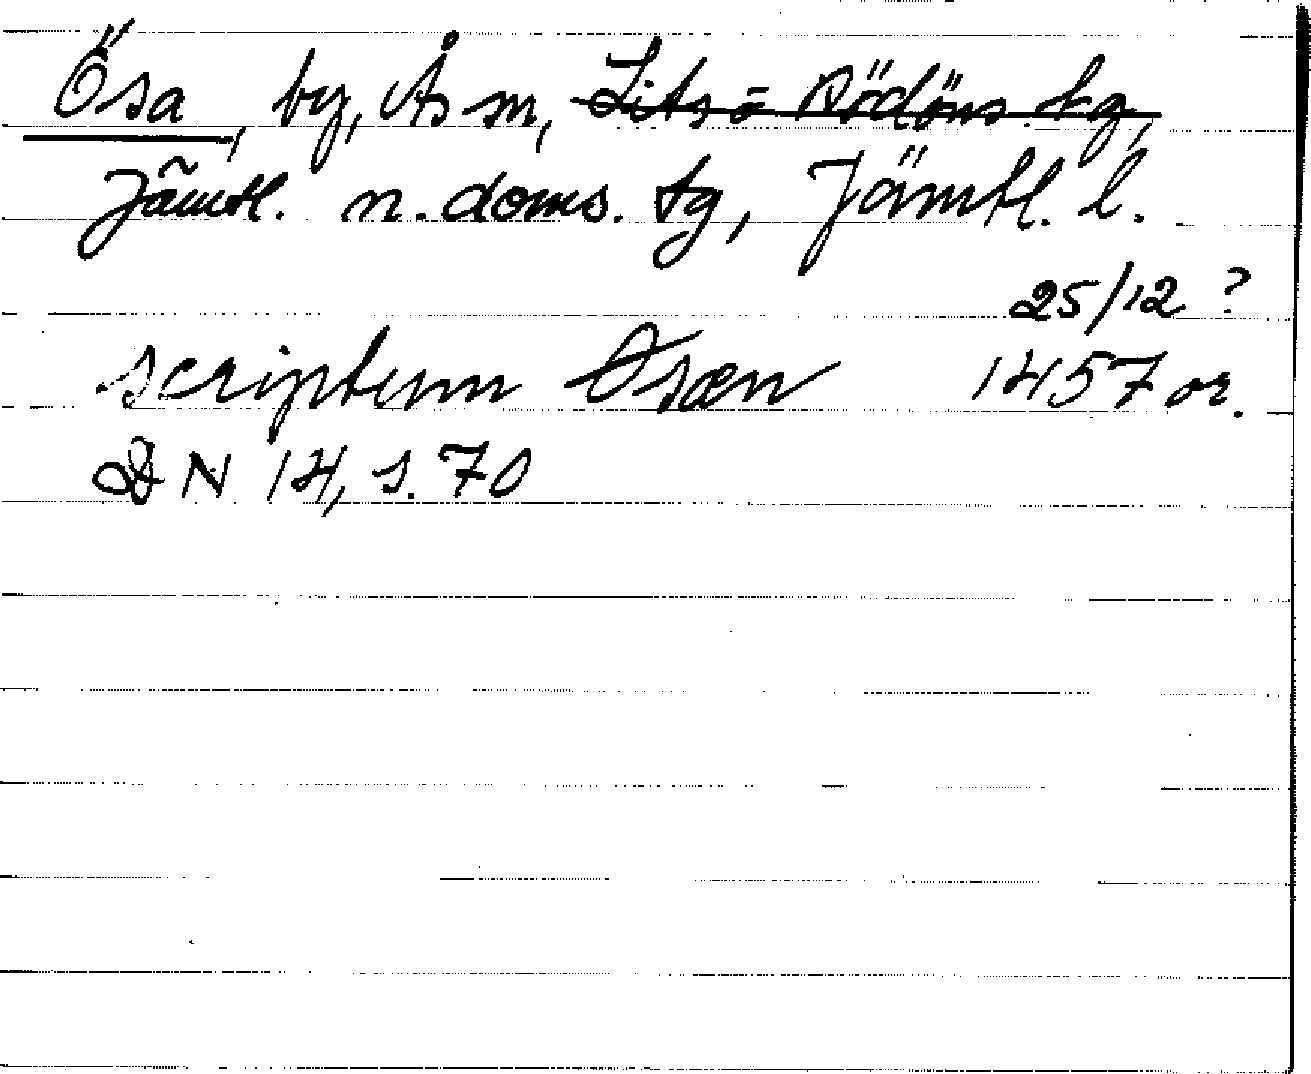 Ösa, by, Ås sn, Lits o Rödöns tg,
Jämtl. n. doms. tg, Jämtl. l.
25/12 ?
scriptum Øsæn 1457 or.
DN 14, s. 70